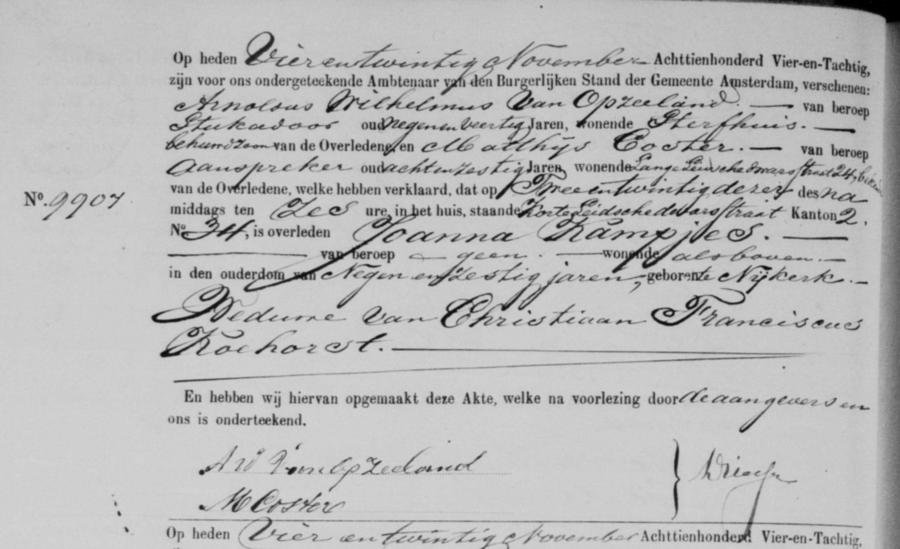 Op heden Vier en twintig November Achttienhonderd Vier-en-Tachtig,
zijn voor ons ondergeteekende Ambtenaar van den Burgerlijken Stand der Gemeente Amsterdam, verschenen:
Arnoldus Wilhelmus Van Opzeeland. — van beroep
Stukadoor oud negen en veertig Jaren, wonende Sterfhuis. —
behuwdzoon van de Overledene, en Matthijs Coster. — van beroep
Aanspreker oud acht en zestig Jaren, wonende Lange Leidschedwarsstraat 24, bekende
van de Overledene, welke hebben verklaard, dat op Twee en twintig dezer des na
No. 9907
middags ten Zes ure, in het huis, staande Korte Leidschedwarsstraat Kanton 2.
No. 34, is overleden Joanna Kampjes. —
— van beroep — geen. — wonende als boven. —
in den ouderdom van Negen en Zestig jaren, geboren te Nijkerk. —
Weduwe van Christiaan Franciscus
Koehorst. —
En hebben wij hiervan opgemaakt deze Akte, welke na voorlezing door de aangevers en
ons is onderteekend.
A W Van Opzeeland
M Coster
Op heden Vier en twintig November Achttienhonderd Vier-en-Tachtig,